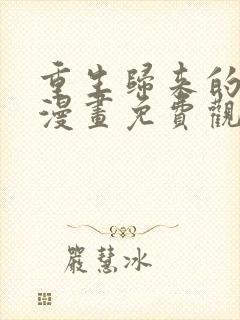 重生歸來的
漫畫免費觀
嚴慧冰